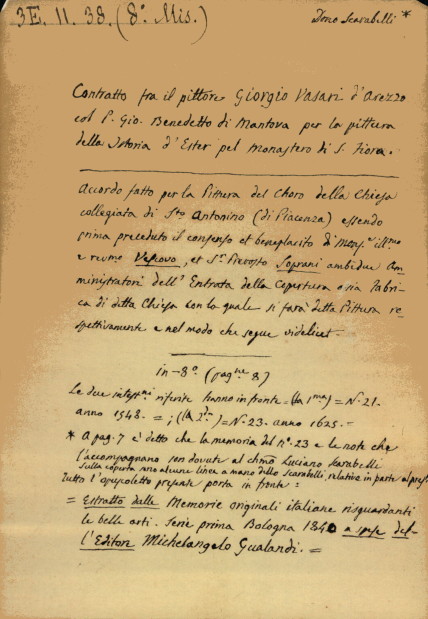 3E. 11. 38. (8º Mis.)
Dono Scarabelli *
Contratto fra il pittore Giorgio Vasari d'Arezzo
col P. Gio. Benedetto di Mantova per la pittura
della Istoria d'Ester pel Monastero di S. Fiora.
Accordo fatto per la Pittura del Choro della Chiesa
collegiata di Sto Antonino (di Piacenza) essendo
prima preceduto il consenso et beneplacito di Monsr illmo
e revmo Vescovo, et Sr Prevosto Soprani ambidue Am-
ministratori dell' Entrata della Copertura o sia Fabri-
ca di ditta Chiesa con la quale si farà detta Pittura re-
spettivamente e nel modo che segue videlicet.
in-8º (pagne 8)
Le due intestni riferite hanno in fronte = (la 1ma) = Nº 21.
anno 1548. = ; (la 2da) = Nº 23. anno 1625. =
* A pag. 7 è detto che la memoria del nº 23 e le note che
l'accompagnano son dovute al chmo Luciano Scarabelli
Sulla coperta sono alcune linee a mano dello Scarabelli, relative in parte al
Tutto l'opuscoletto presente porta in fronte =
= Estratto dalle Memorie originali italiane risguardanti
le belle arti. Serie prima Bologna 1840 a spese del-
l'Editore Michelangelo Gualandi. =